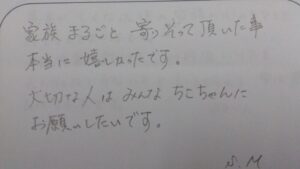 家族まるごと 寄りそって頂いた事
本当に 嬉しかったです。
大切な人は みんな ちこちゃんに
お願いしたいです。
M